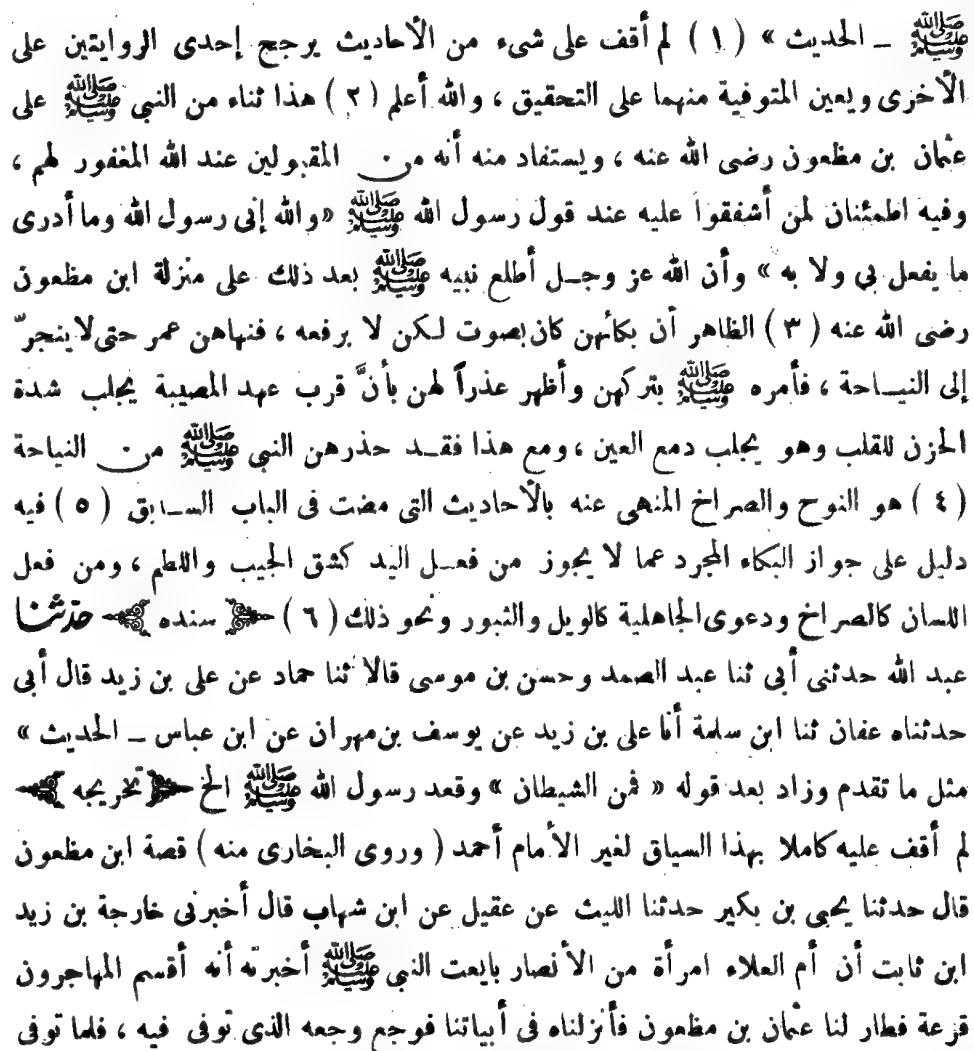 ﷺ ــ الحديث » ( ١ ) لم أقف على شىء من الأحاديث يرجح إحدى الروايتين على
الأخرى ويعين المتوفية منهما على التحقيق ، والله أعلم ( ٢ ) هذا ثناء من النبي ﷺ على
عثمان بن مظعون رضى الله عنه ، ويستفاد منه أنه من المقبولين عند الله المغفور لهم ،
وفيه اطمئنان لمن أشفقوا عليه عند قول رسول الله ﷺ «والله إنى رسول الله وما أدرى
ما يفعل بي ولا به » وأن الله عز وجل أطلع نبيه ﷺ بعد ذلك على منزلة ابن مظعون
رضى الله عنه ( ٣ ) الظاهر أن بكائهن كان بصوت لكن لا برفعه ، فنهاهن عمر حتى لا ينجرّ
إلى النياحة ، فأمره ﷺ بتركهن وأظهر عذراً لهن بأنَّ قرب عهد المصيبة يجلب شدة
الحزن للقلب وهو يجلب دمع العين ، ومع هذا فقد حذرهن النبى ﷺ من النياحة
( ٤ ) هو النوح والصراخ المنهى عنه بالأحاديث التى مضت فى الباب السابق ( ٥ ) فيه
دليل على جواز البكاء المجرد عما لا يجوز من فعل اليد كشق الجيب واللطم ، ومن فعل
اللسان كالصراخ ودعوى الجاهلية كالويل والثبور ونحو ذلك ( ٦ ) ﴿ سنده ﴾ حدّثنا
عبد الله حدثنى أبى ثنا عبد الصمد وحسن بن موسى قالا ثنا حماد عن على بن زيد قال أبى
حدثناه عفان ثنا ابن سلمة أنا على بن زيد عن يوسف بن مهران عن ابن عباس ــ الحديث »
مثل ما تقدم وزاد بعد قوله « فمن الشيطان » وقعد رسول الله ﷺ الخ ﴿ تخريجه ﴾
لم أقف عليه كاملا بهذا السياق لغير الأمام أحمد ( وروى البخارى منه ) قصة ابن مظعون
قال حدثنا يحيى بن بكير حدثنا الليث عن عقيل عن ابن شهاب قال أخبرنى خارجة بن زيد
ابن ثابت أن أم العلاء امرأة من الأنصار بايعت النبى ﷺ أخبرته أنه أقسم المهاجرون
قزعة فطار لنا عثمان بن مظعون فأنزلناه فى أبياتنا فوجع وجعه الذى توفى فيه ، فلما توفى